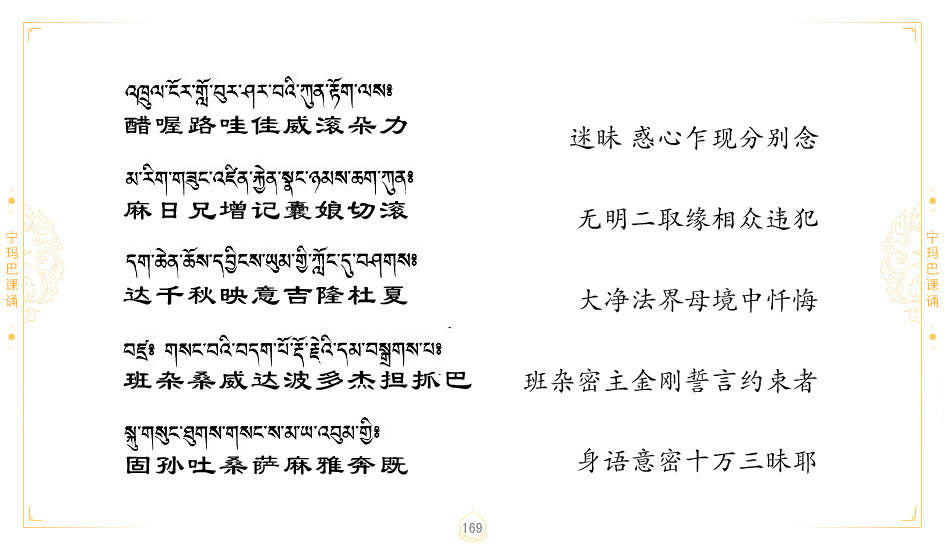 འཁྲུལ་ངོར་གློ་བུར་ཤར་བའི་ཀུན་རྟོག་ལས༔
醋喔路哇佳威滚朵力
迷昧 惑心乍现分别念
མ་རིག་གཟུང་འཛིན་རྐྱེན་སྣང་ཉམས་ཆག་ཀུན༔
麻日兄增记囊娘切滚
无明二取缘相众违犯
དག་ཆེན་ཆོས་དབྱིངས་ཡུམ་གྱི་ཀློང་དུ་བཤགས༔
达千秋映意吉隆杜夏
大净法界母境中忏悔
བཛྲ༔ གསང་བའི་བདག་པོ་རྡོ་རྗེའི་དམ་བསྒྲགས་པ༔
班杂桑威达波多杰担抓巴
班杂密主金刚誓言约束者
སྐུ་གསུང་ཐུགས་གསང་ས་མ་ཡ་འབུམ་གྱི༔
固孙吐桑萨麻雅奔既
身语意密十万三昧耶
宁玛巴课诵
宁玛巴课诵
169